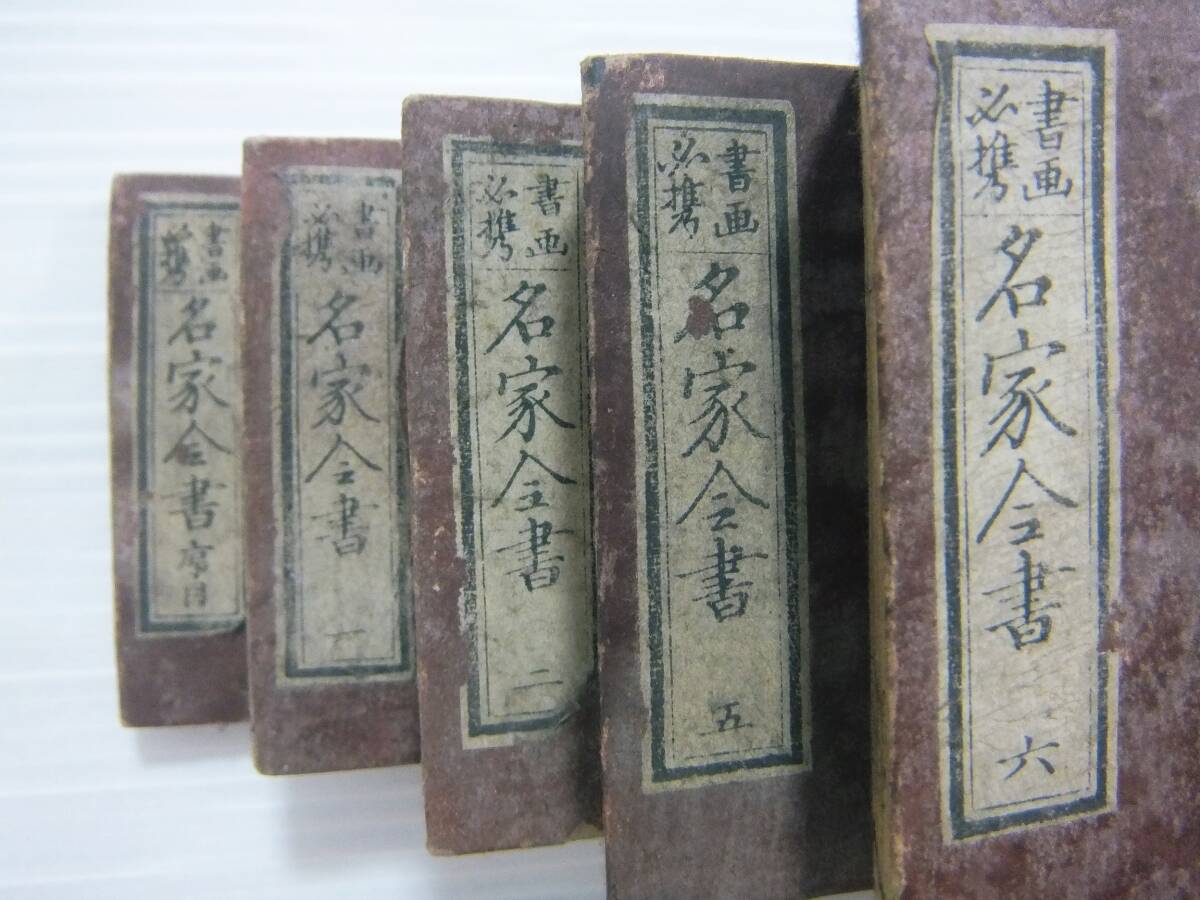 書画
必携
名家全書序目
書画
必携
名家全書 一
書画
必携
名家全書 二
書画
必携
名家全書 五
書画
必携
名家全書 六